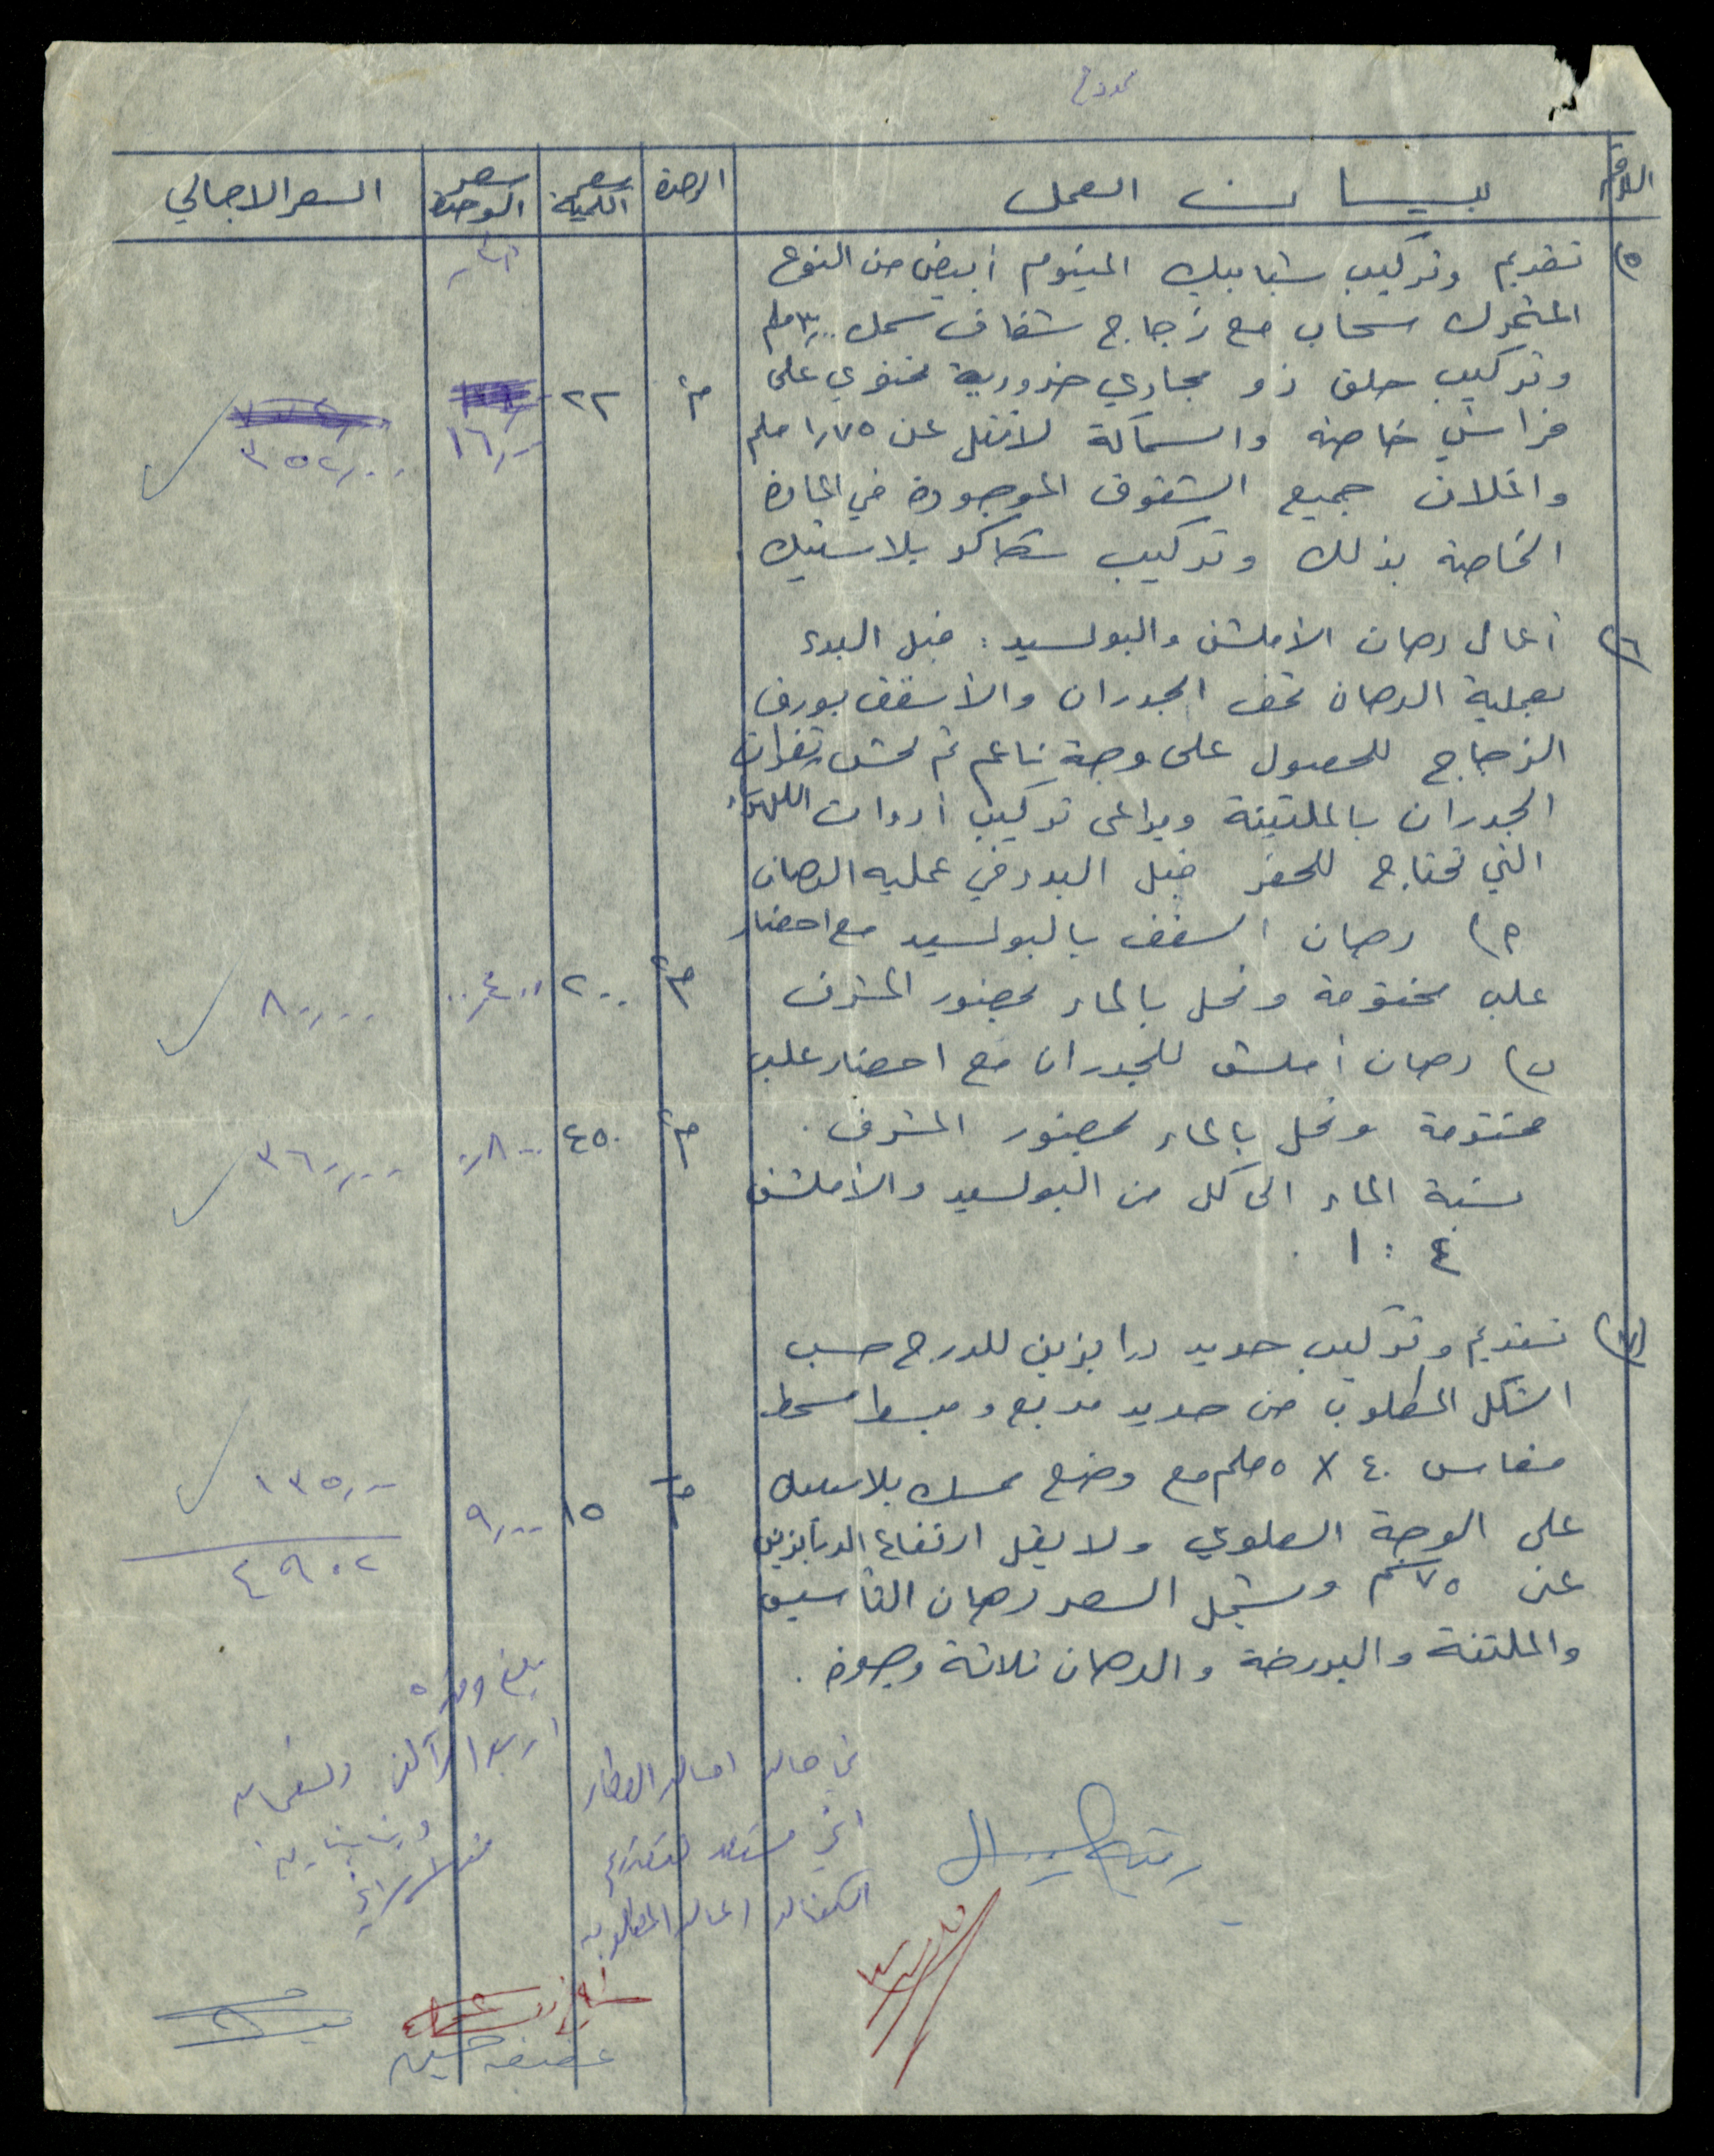 الرقم بيان العمل الوحدة سعر الكمية سعر الوحدة السعر الاجمالي
٥) تقديم وتركيب شبابيك المنيوم أبيض من النوع
المتحرك سحاب مع زجاج شفاف سمك ٣,٠٠ ملم
وتركيب حلق ذو مجاري ضرورية تحتوي على م٢ ٢٢
فراشي خاصة والسماكة لا تقل عن ١,٧٥ ملم ١٦,٠٠ ٣٥٢,٠٠
واغلاق جميع الشقوق الموجودة في المادة
الخاصة بذلك وتركيب شكاكو بلاستيك
٦) أعمال دهان الأملشن والبولسيد: قبل البدء
بعملية الدهان تحف الجدران والأسقف بورق
الزجاج للحصول على وجه ناعم ثم
الجدران بالملتينة ويراعى تركيب أدوات الكهرباء
التي تحتاج للحفر قبل البدء في عملية الدهان
أ) دهان السقف بالبولسيد مع احضار
علب مختومة وتحل بالماء بحضور المشرف م٢ ٢٠٠ ,٤٠٠ ٨٠,٠٠٠
ب) دهان أملشن للجدران مع احضار علب
مختومة وتحل بالماء بحضور المشرف . م٢ ٤٥٠ ,٨٠٠ ٣٦٠,٠٠٠
نسبة الماء الى كل من البولسيد والأملشن
٤ : ١ .
٧) تقديم وتركيب حديد درابزين للدرج حسب
الشكل المطلوب من حديد مربع ومبسط
مقاس ٤٠ X ٥ ملم مع وضع مسك بلاستيك م ١٥ ٩,٠٠٠ ١٣٥,٠٠
على الوجة العلوي ولا يقل ارتفاع الدرابزين ٤٩٠٢
عن ٧٥ سم ويشمل السعر دهان التأسيس
والملتنة والبورضة والدهان ثلاثة وجوه .
مبلغ وقدره
اربعة آلاف وتسعماية
في حال احالة العطاء
اني مستعد لتقديم
الكفالة المالية المطلوبة